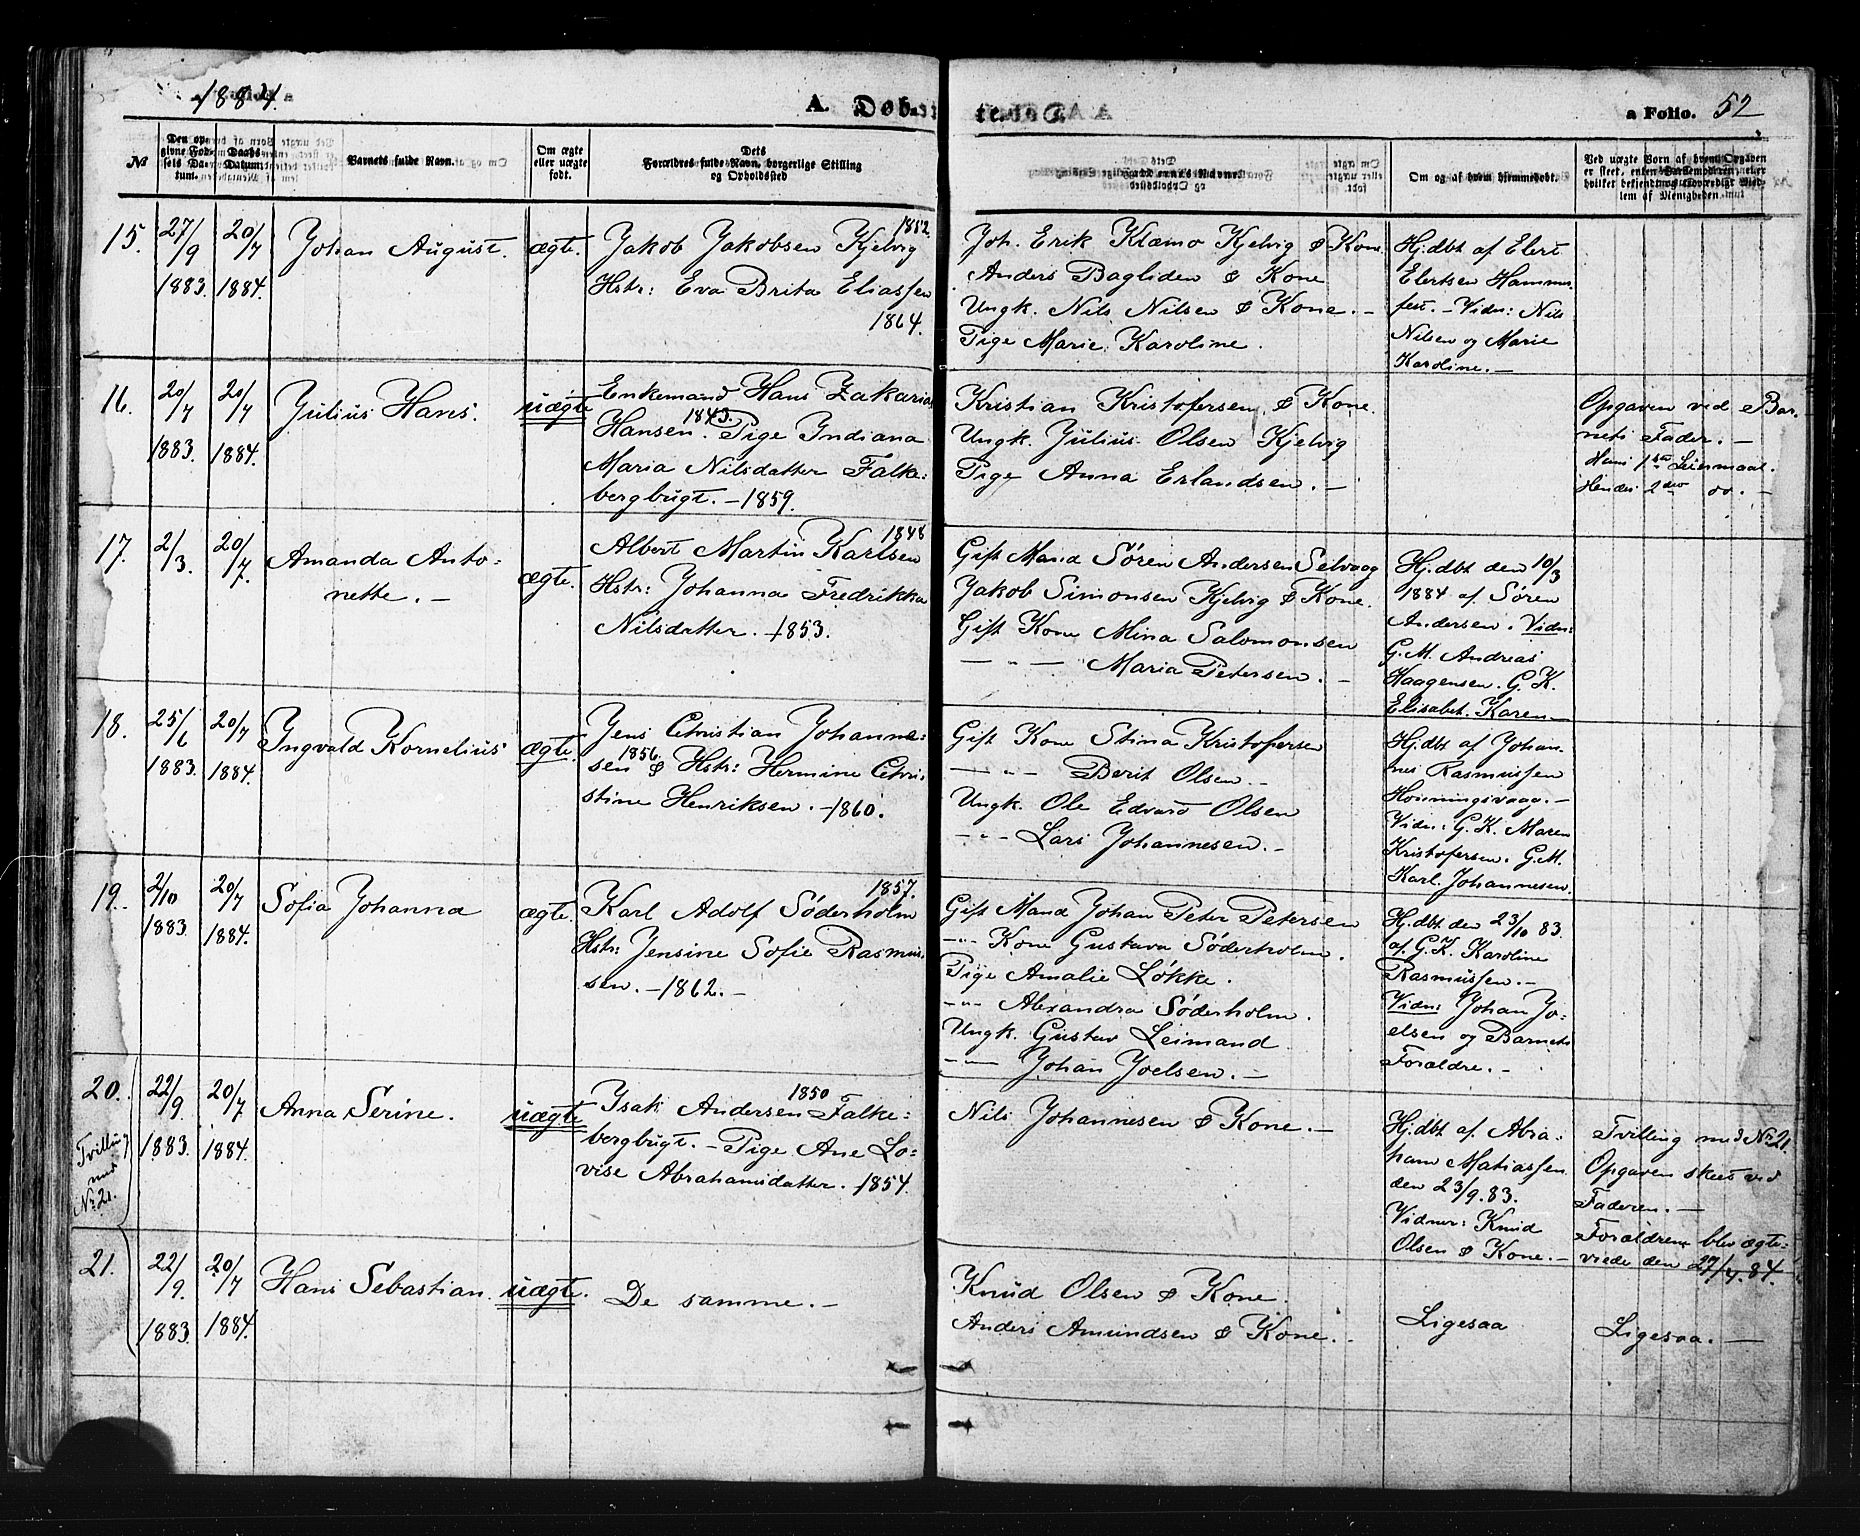 1884.
A. Döb-
te.
a Folio. 52
№
Den opgivne Fødsels Datum.
Daabs Datum.
Barnets fulde Navn.
Om ægte eller uægte født.
Dets Forældres fulde Navn, borgerlige Stilling og Opholdssted
Om og af hvem hjemmedøbt.
Ved uægte Børn af hvem Opgaven er skeet, enten
15. 27/9 1883. 20/7 1884.
Johan August.
ægte.
Jakob Jakobsen Kjelvig 1852.
Hstr: Eva Brita Eliassen
1864.
Joh. Erik Klæmo Kjelvig & Kone.
Anders Bagliden & Kone
Ungk. Nils Nilsen & Kone. -
Pige Marie Karoline.
Hj.dbt af Elert
Elertsen Hammer-
fest. - Vidn: Nils
Nilsen og Marie
Karoline. -
16. 20/7 1883. 20/7 1884.
Julius Hans.
uægte
Enkemand Hans Zakarias
Hansen. 1843. Pige Indiana
Maria Nilsdatter Falke:
bergbugt. - 1859.
Kristian Kristofersen & Kone.
Ungk. Julius Olsen Kjelvig
Pige Anna Erlandsen. -
Opgaven ved Bar-
nets Fader. -
Hans 1ste Leiermaal.
Hendes 2det do. -
17. 2/3 20/7
Amanda Anto-
nette. -
ægte.
Albert Martin Karlsen 1848
Hstr: Johanna Fredrikka
Nilsdatter. - 1853.
Gift Mand Søren Andersen Selvaag
Jakob Simonsen Kjelvig & Kone.
Gift Kone Mina Salomonsen
— " — Maria Petersen. -
Hj.dbt den 10/3
1884 af Søren
Andersen. Vidn:
G.M. Andreas
Haagensen. G.K.
Elisabet. Karen -
18. 25/6 1883. 20/7 1884.
Ingvald Kornelius
ægte
Jens Christian Johanne:
sen 1856. & Hstr: Hermine Chri-
stine Henriksen. - 1860.
Gift Kone Stina Kristofersen
— " — Berit Olsen. -
Ungk. Ole Edvard Olsen
— " — Lars Johannesen. -
Hj.dbt af Johan-
nes Rasmussen
Honningsvaag. -
Vidn: G.K. Maren
Kristofersen. G.M.
Karl Johannesen.
19. 2/10 1883. 20/7 1884.
Sofia Johanna
ægte.
Karl Adolf Söderholm 1857.
Hstr: Jensine Sofie Rasmus:
sen. - 1862. -
Gift Mand Johan Peter Petersen
— " — Kone Gustava Söderholm.
Pige Amalie Løkke.
— " — Alexandra Söderholm.
Ungk. Gustav Leimand
— " — Johan Joelsen. -
Hj.dbt. den 23/10 83.
af G.K. Karoline
Rasmussen. -
Vidn: Johan Jo-
elsen og Barnets
Forældre. -
20. 22/9 1883. 20/7 1884.
Tvilling
med
Nr. 21.
Anna Serine.
uægte
Isak Andersen 1850 Falke:
bergbugt. - Pige Ane Lo-
vise Abrahamsdatter. - 1854.
Nils Johannesen & Kone. -
Hj.dbt af Abra-
ham Matiassen
den 23/9.83.
Vidner: Knud
Olsen & Kone. -
Tvilling med Nr. 21.
Opgaven skeet ved
Faderen. -
Forældrene blev ægte-
viede den 27/7.84.
21. 22/9 1883. 20/7 1884.
Hans Sebastian.
uægte.
De samme. -
Knud Olsen & Kone.
Anders Amundsen & Kone. -
Ligesaa
Ligesaa. -